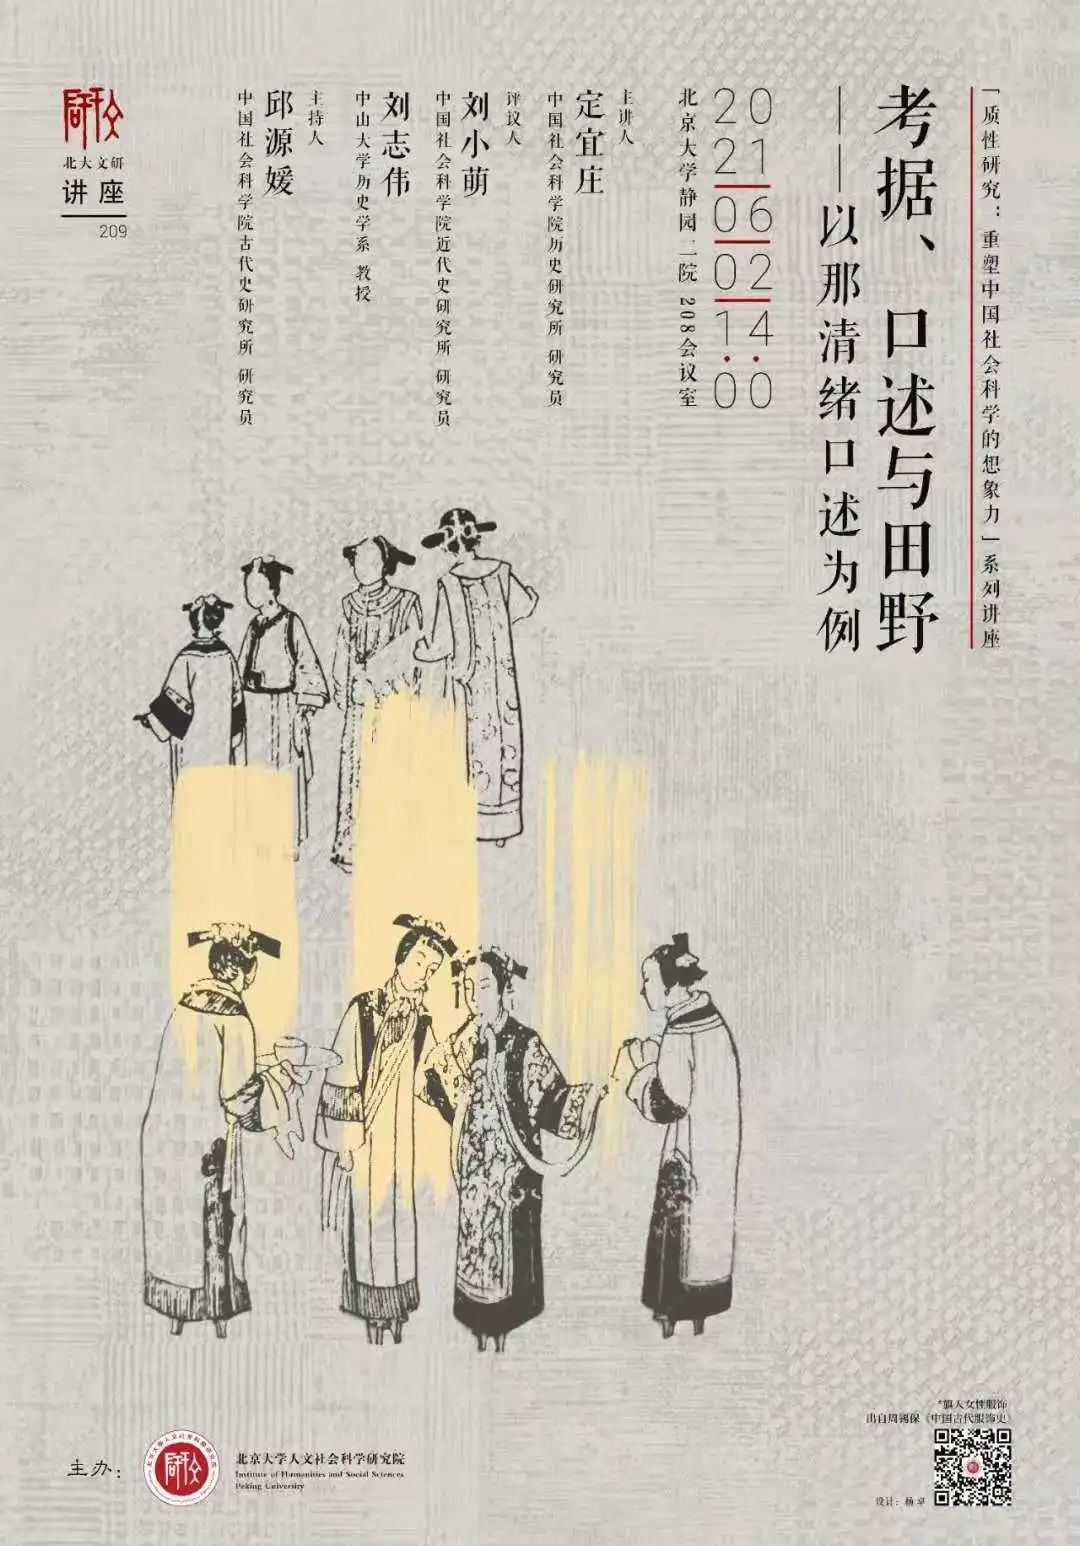 「质性研究：重塑中国社会科学的想象力」系列讲座
考据、口述与田野
——以那清绪口述为例
20
21
06
02
14
:
00
北京大学静园二院 208会议室
主讲人
定宜庄
中国社会科学院历史研究所 研究员
评议人
刘小萌
中国社会科学院近代史研究所 研究员
刘志伟
中山大学历史学系 教授
主持人
邱源媛
中国社会科学院古代史研究所 研究员
北大文研
讲座
209
*旗人女性服饰
出自周锡保《中国古代服饰史》
设计：杨卓
主办：
北京大学人文社会科学研究院
Institute of Humanities and Social Sciences
Peking University